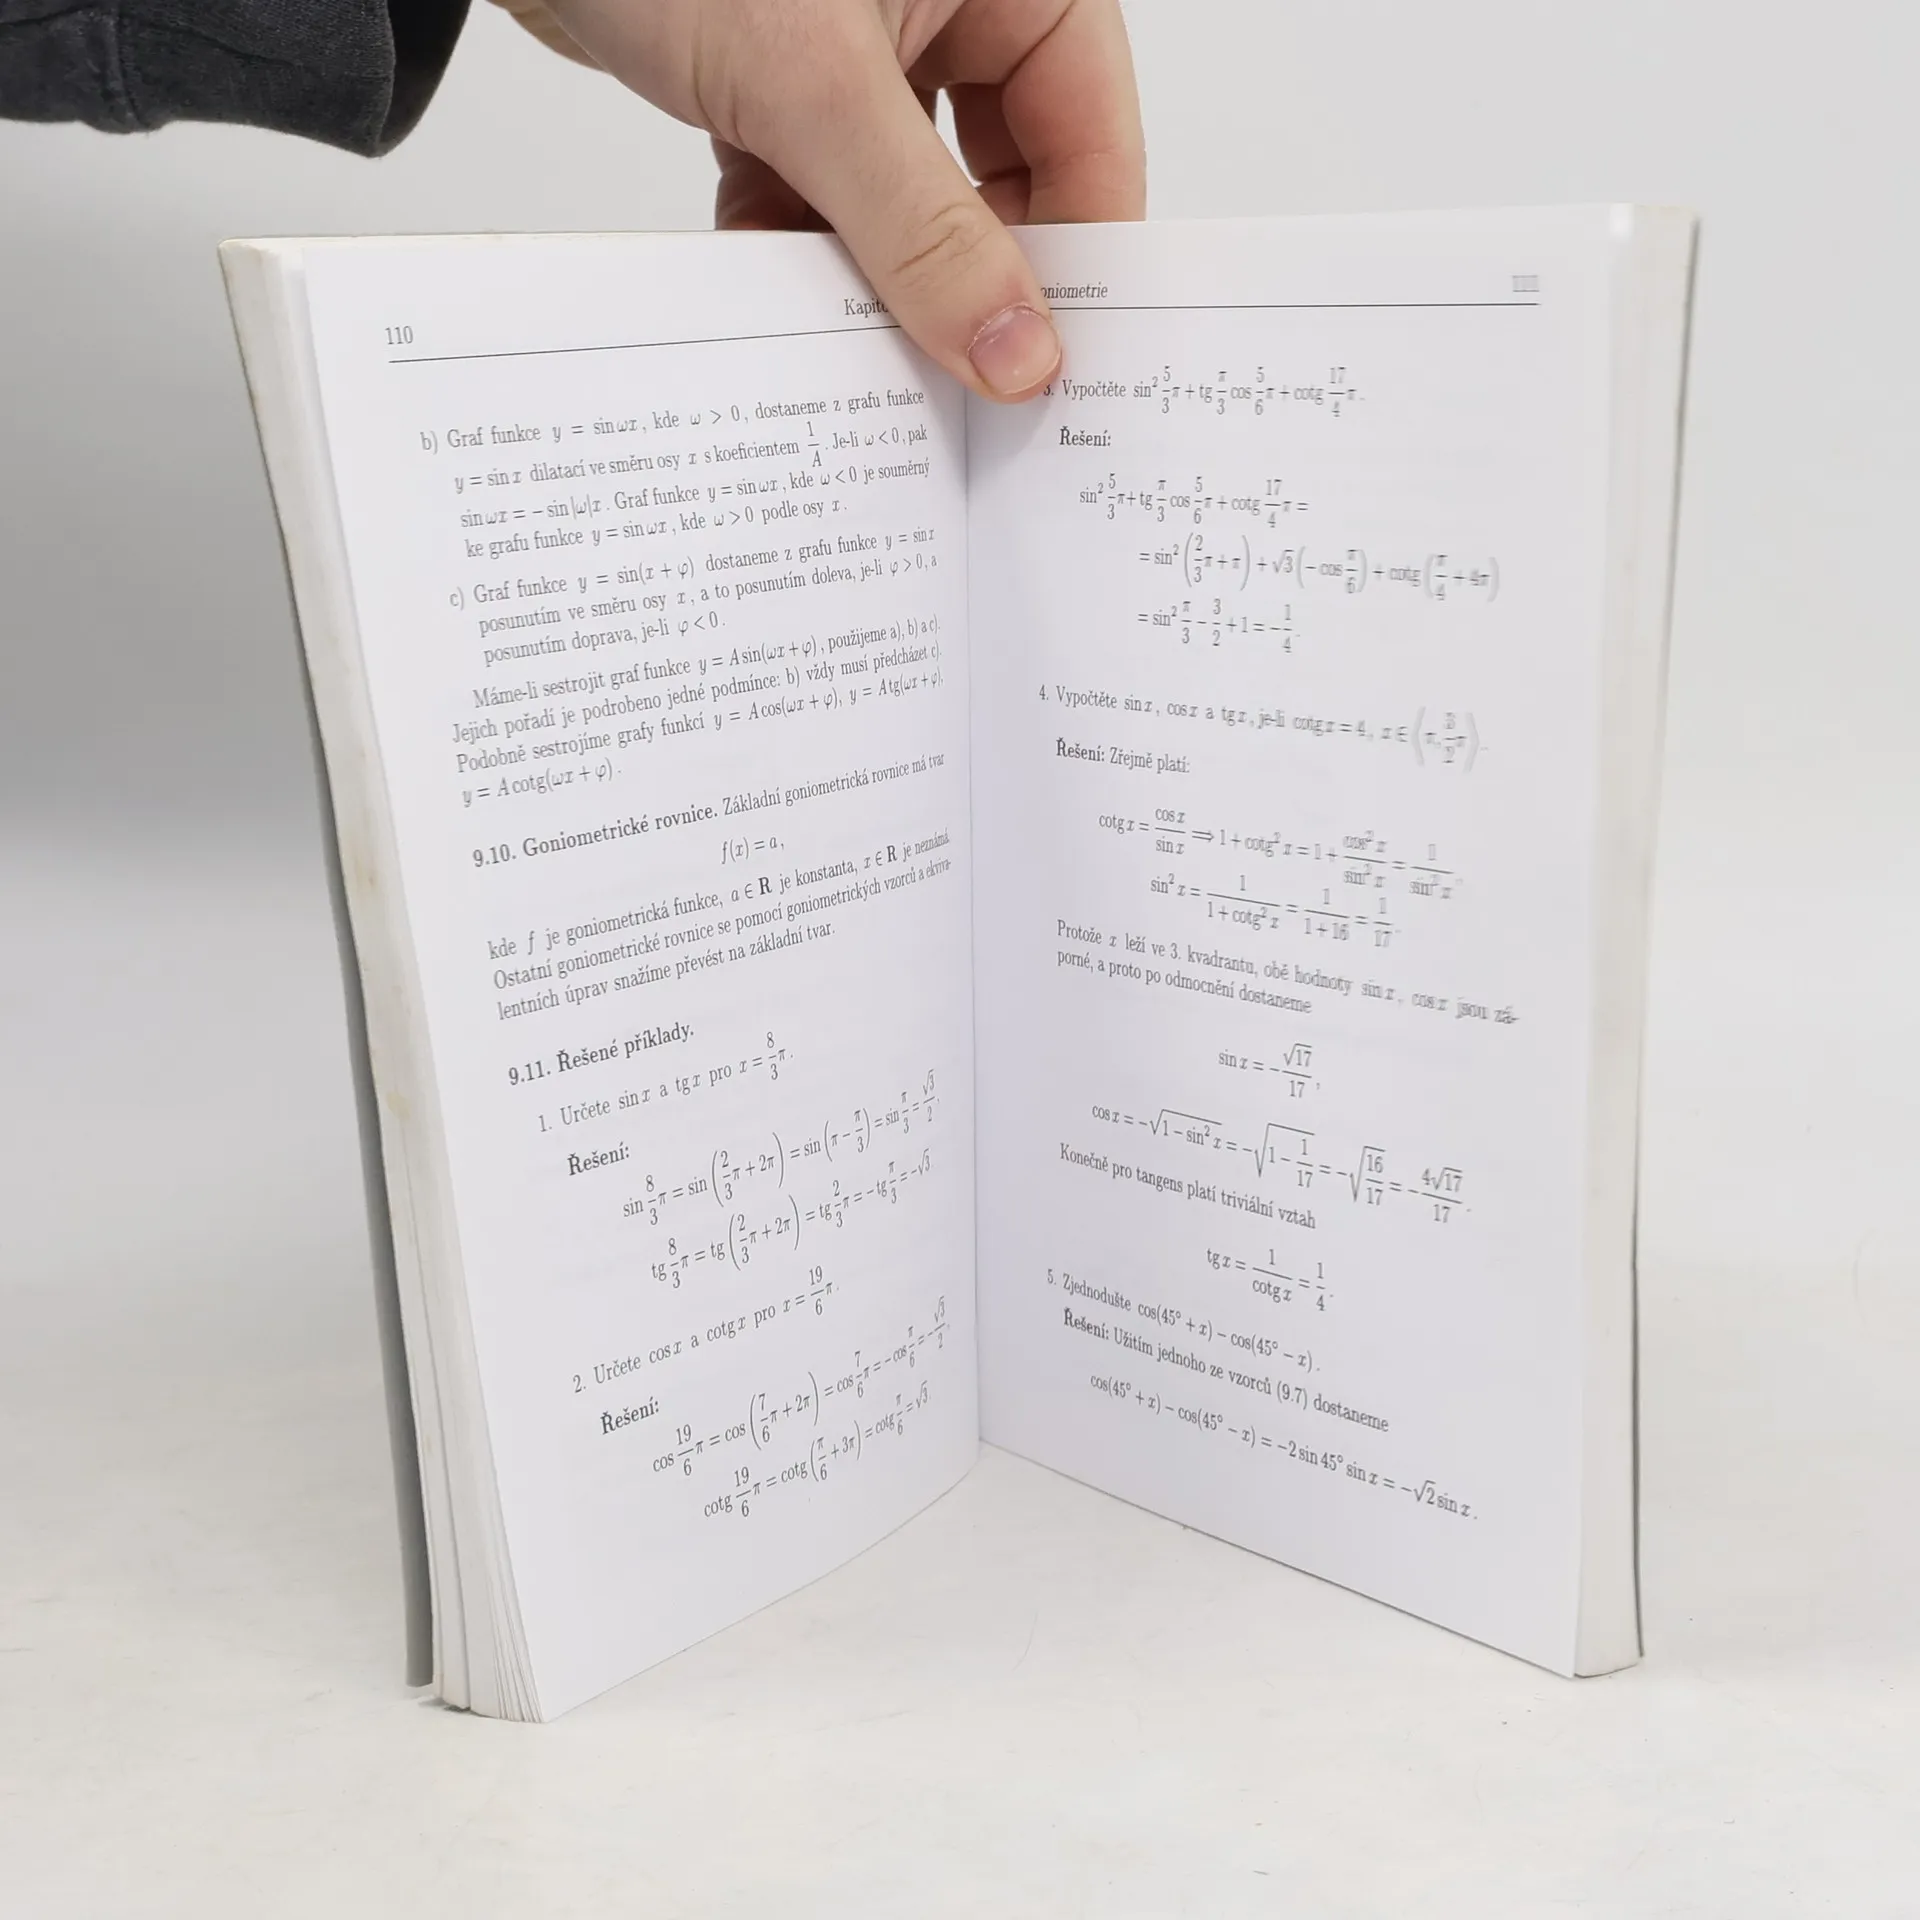 110
b) Graf funkce y = sin ωx, kde ω > 0, dostaneme z grafu funkce
y = sin x dilatací ve směru osy x s koeficientem 1/A. Je-li ω < 0, pak
sin ωx = − sin |ω|x. Graf funkce y = sin ωx, kde ω < 0 je souměrný
ke grafu funkce y = sin ωx, kde ω > 0 podle osy x.
c) Graf funkce y = sin(x + φ) dostaneme z grafu funkce y = sin x
posunutím ve směru osy x, a to posunutím doleva, je-li φ > 0, a
posunutím doprava, je-li φ < 0.
Máme-li sestrojit graf funkce y = A sin(ωx + φ), použijeme a), b) a c).
Jejich pořadí je podrobeno jedné podmínce: b) vždy musí předcházet c).
Podobně sestrojíme grafy funkcí y = A cos(ωx + φ), y = A tg(ωx + φ),
y = A cotg(ωx + φ).
9.10. Goniometrické rovnice. Základní goniometrická rovnice má tvar
f(x) = a,
kde f je goniometrická funkce, a ∈ R je konstanta, x ∈ R je neznámá.
Ostatní goniometrické rovnice se pomocí goniometrických vzorců a ekviva-
lentních úprav snažíme převést na základní tvar.
9.11. Řešené příklady.
1. Určete sin x a tg x pro x = 8/3 π.
Řešení:
sin 8/3 π = sin (2/3 π + 2π) = sin (π − π/3) = sin π/3 = √3/2,
tg 8/3 π = tg (2/3 π + 2π) = tg 2/3 π = − tg π/3 = −√3
2. Určete cos x a cotg x pro x = 19/6 π.
Řešení:
cos 19/6 π = cos (7/6 π + 2π) = cos 7/6 π = − cos π/6 = −√3/2,
cotg 19/6 π = cotg (π/6 + 3π) = cotg π/6 = √3.
111
3. Vypočtěte sin² 5/3 π + tg π/3 cos 5/6 π + cotg 17/4 π.
Řešení:
sin² 5/3 π + tg π/3 cos 5/6 π + cotg 17/4 π =
= sin² (2/3 π + π) + √3 (− cos π/6) + cotg (π/4 + 4π)
= sin² π/3 − 3/2 + 1 = −1/4.
4. Vypočtěte sin x, cos x a tg x, je-li cotg x = 4, x ∈ ⟨π, 3/2 π⟩.
Řešení: Zřejmě platí:
cotg x = cos x/sin x ⟹ 1 + cotg² x = 1 + cos² x/sin² x = 1/sin² x,
sin² x = 1/(1 + cotg² x) = 1/(1 + 16) = 1/17.
Protože x leží ve 3. kvadrantu, obě hodnoty sin x, cos x jsou zá-
porné, a proto po odmocnění dostaneme
sin x = −√17/17,
cos x = −√(1 − sin² x) = −√(1 − 1/17) = −√(16/17) = −4√17/17.
Konečně pro tangens platí triviální vztah
tg x = 1/cotg x = 1/4.
5. Zjednodušte cos(45° + x) − cos(45° − x).
Řešení: Užitím jednoho ze vzorců (9.7) dostaneme
cos(45° + x) − cos(45° − x) = −2 sin 45° sin x = −√2 sin x.